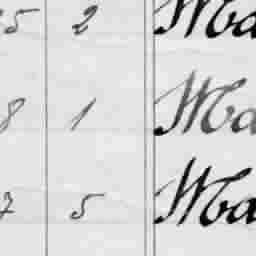 5 2 Ma
8 1 Ma
7 5 Ma